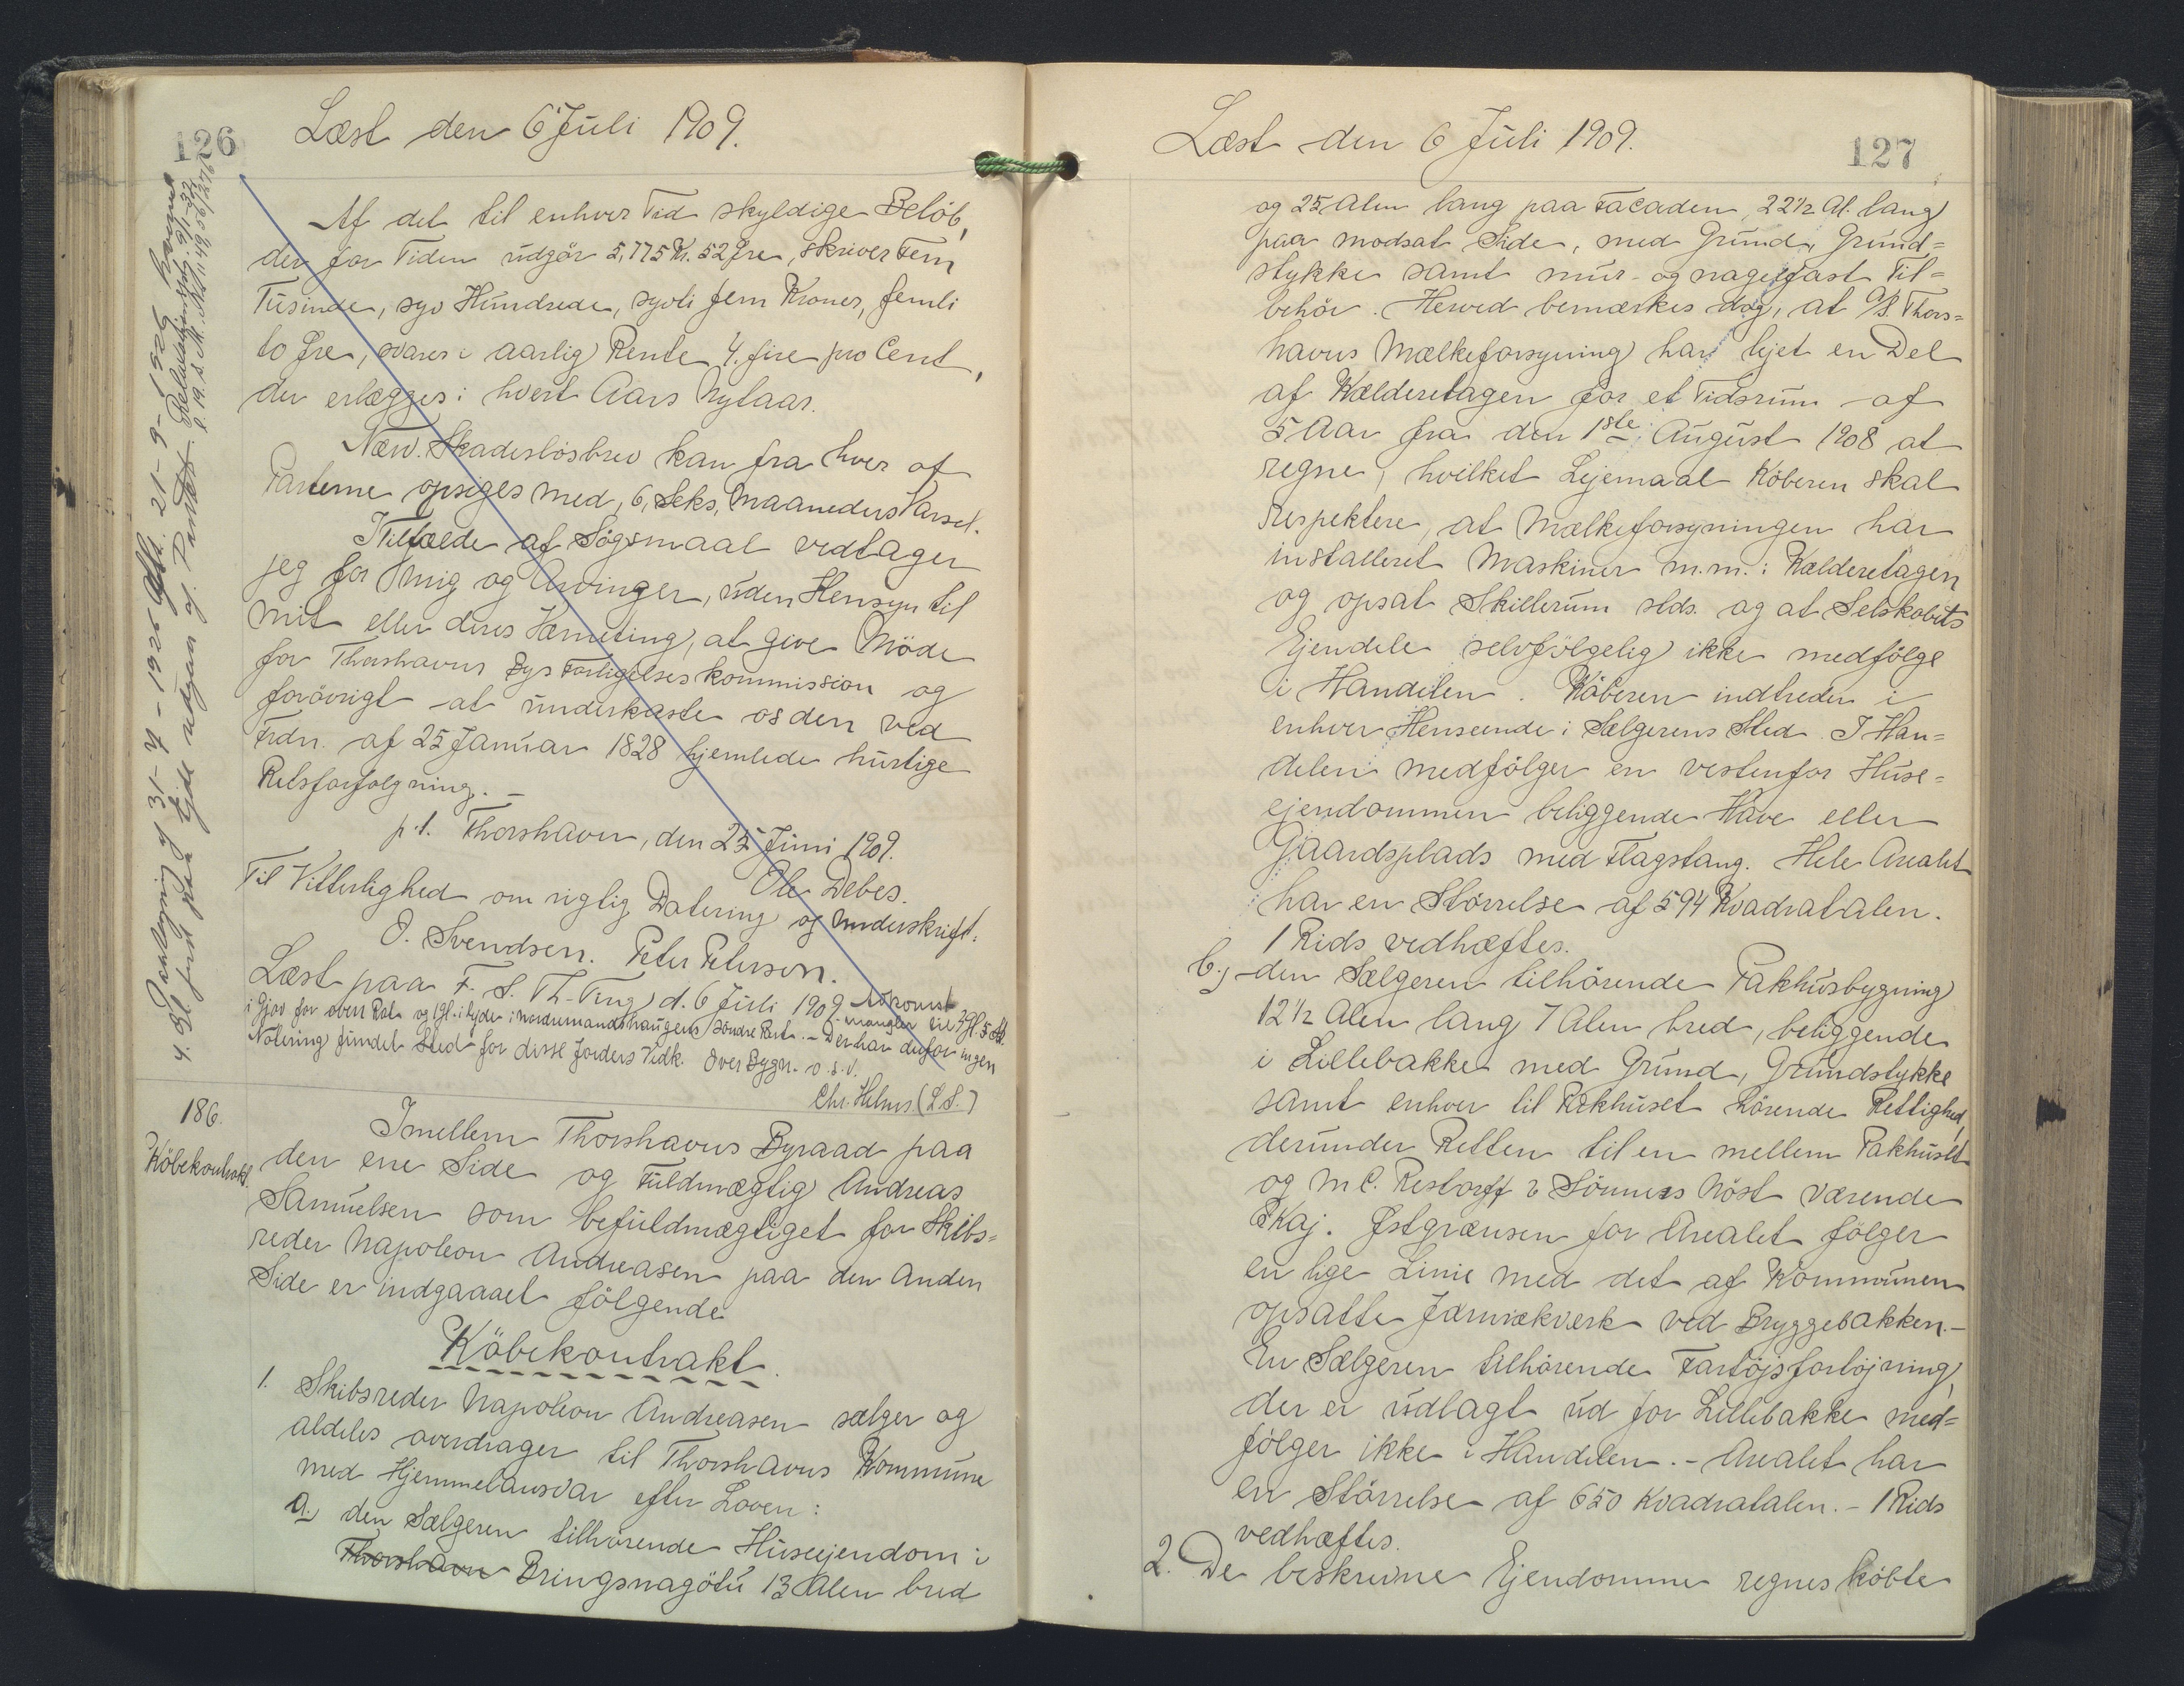 126
Læst den 6' Juli 1909.
Af det til enhver Tid skyldige Beløb,
der for Tiden udgör 5,775 Kr. 52 Øre, skriver Fem
Tusinde, syv Hundrede, syvti fem Kroner, femti
to Øre, svares i aarlig Rente 4. fire pro Cent,
der erlægges i hvert Aars Nytaar.
Nærv. Skadesløsbrev kan fra hver af
Parterne opsiges med, 6, Seks, Maaneders Varsel.
I Tilfælde af Søgsmaal vedtager
jeg for mig og Arvinger, uden Hensyn til
mit eller deres Værneting, at give Möde
for Thorshavns Bys Forligelseskommission og
forövrigt at underkaste os den ved
Frdn. af 25 Januar 1828 hjemlede hurtige
Retsforfølgning. –
p.t. Thorshavn, den 25 Juni 1909.
Ole Debes.
Til Vitterlighed om rigtig Datering og Underskrift:
O. Svendsen. Peter Petersen.
Læst paa F. S. Th-Ting d. 6 Juli 1909. Adkomst
mangler til
i Gjov for overn Rets og i Nordremandshaugens søndre Part. – Der har derfor ingen
Notering fundet Sted for disse Jorders Vedk. Over Bygn. o.s.v.
Chr. Helms (L.S.)
186.
Köbekontrakt.
Imellem Thorshavns Byraad paa
den ene Side og Fuldmægtig Andreas
Samuelsen som befuldmægtiget for Skibs=
reder Napoleon Andreasen paa den Anden
Side er indgaaaet fölgende
Köbekontrakt.
1. Skibsreder Napoleon Andreasen sælger og
aldeles overdrager til Thorshavns Kommune
med Hjemmelansvar efter Loven:
a) den Sælgeren tilhörende Huseejendom i
Thorshavn Bringsnagötu 13 Alen bred
127
Læst den 6 Juli 1909.
og 25 Alen lang paa Facaden, 22½ Al. lang
paa modsat Side, med Grund, Grund=
stykke samt mur- og nagelfast Til=
behör. Herved bemærkes dog, at A/S Thors=
havns Mælkeforsyning har lejet en Del
af Kælderetagen for et Tidsrum af
5 Aar fra den 1ste August 1908 at
regne, hvilket Lejemaal Köberen skal
respektere, at Mælkeforsyningen har
installeret Maskiner m.m. i Kælderetagen
og opsat Skillerum slds. og at Selskabets
Ejendele selvfölgelig ikke medfölge
i Handelen. Köberen indtreder i
enhver Henseende i Sælgerens Sted. I Han=
delen medfölger en vestenfor Huse=
ejendommen beliggende Have eller
Gaardsplads med Flagstang. Hele Arealet
har en Störrelse af 594 Kvadratalen.
1 Rids vedhæftes.
b.) den Sælgeren tilhörende Pakhusbygning
12½ Alen lang 7 Alen bred, beliggende
i Lillebakke med Grund, Grundstykke
samt enhver til Pakhuset hörende Rettighed,
derunder Retten til en mellem Pakhuset
og M C. Restorff & Sönners Nöst værende
Kaj. Østgrænsen for Arealet fölger
en lige Linie med det af Kommunen
opsatte Jærnrækværk ved Bryggebakken. –
En Sælgeren tilhörende Fartöjsfortöjning,
der er udlagt ud for Lillebakke med=
fölger ikke i Handelen. – Arealet har
en Störrelse af 650 Kvadratalen. – 1 Rids
vedhæftes.
2. De beskrevne Ejendomme regnes köbte